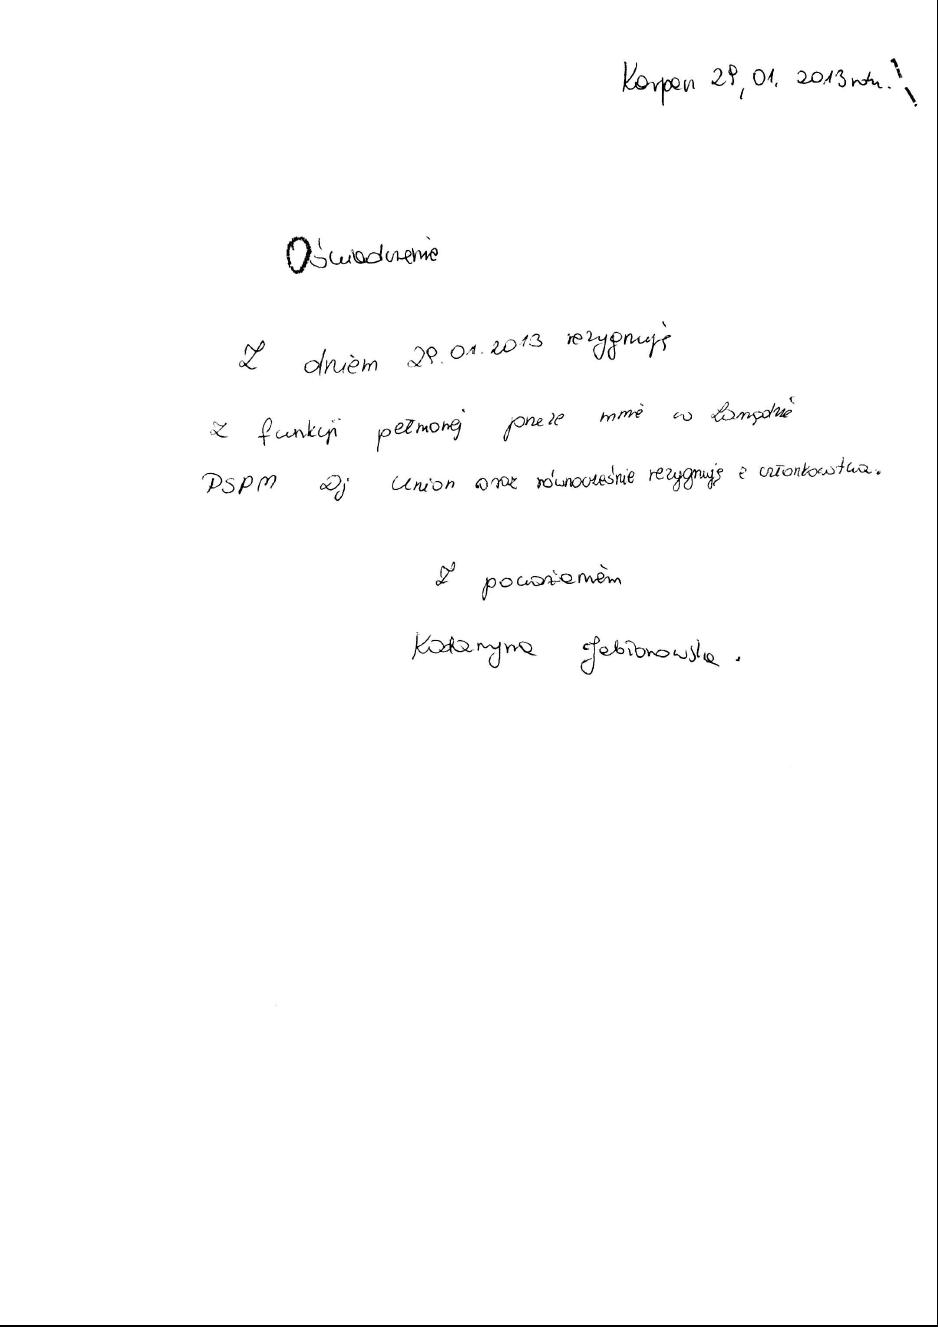 Karpen 29,01. 2013 roku.
Oświadczenie
Z dniem 29.01.2013 rezygnuję
z funkcji pełnionej przeze mnie w Zarządzie
PSPM Dj Union oraz równocześnie rezygnuję z członkostwa.
Z poważaniem
Katarzyna Jabłonowska.